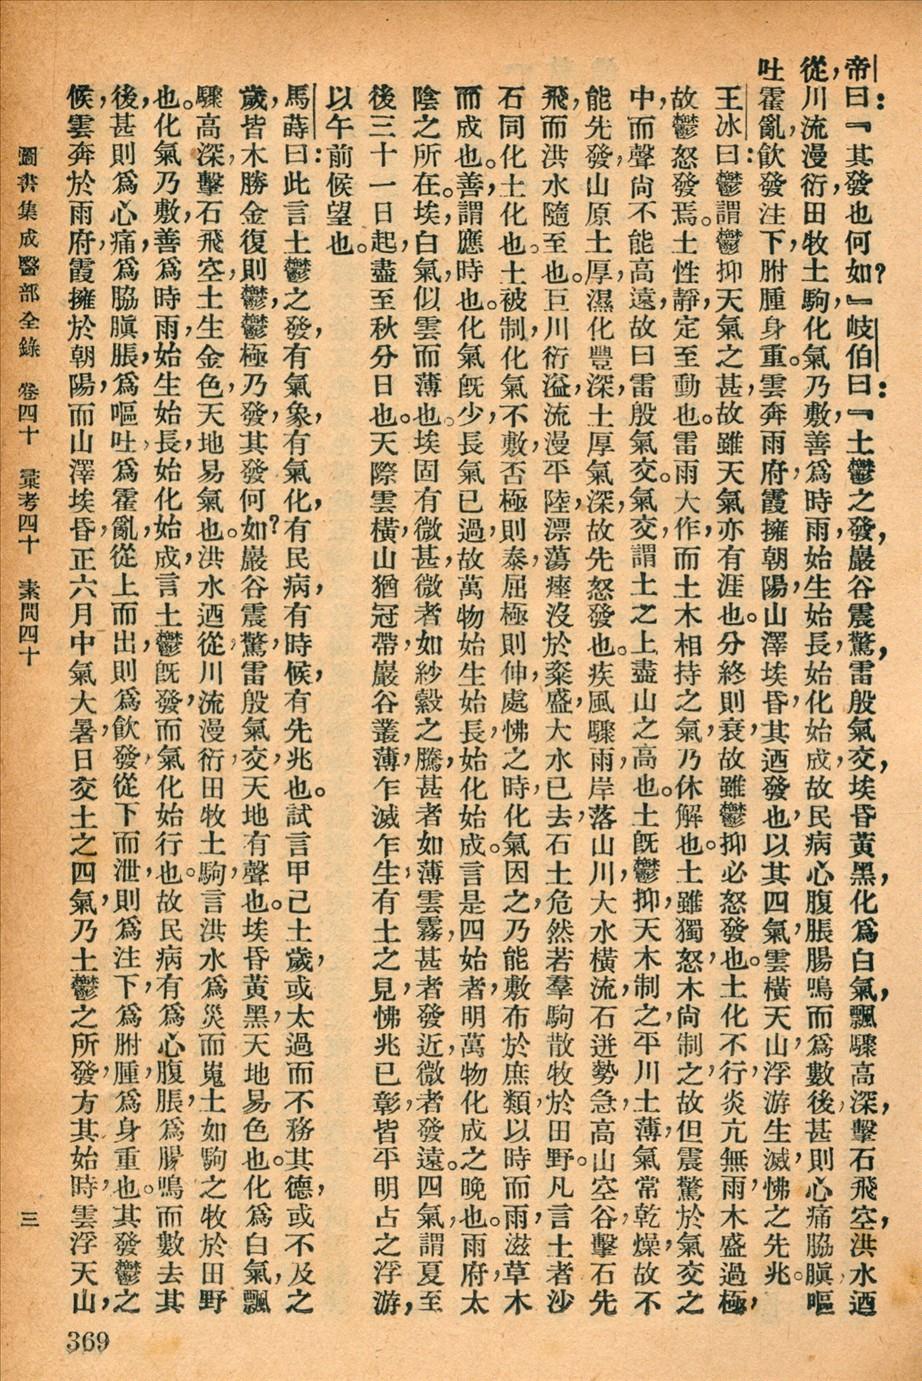 帝曰:『其發也何如?』岐伯曰:『土鬱之發,巖谷震驚,雷殷氣交,埃昏黃黑,化爲白氣,飄驟高深,擊石飛空,洪水迺
從,川流漫衍,田牧土駒,化氣乃敷,善爲時雨,始生始長,始化始成,故民病心腹脹,腸鳴而爲數後,甚則心痛脇䐜,嘔
吐霍亂,飮發注下,胕腫身重。雲奔雨府,霞擁朝陽,山澤埃昏,其迺發也,以其四氣。雲橫天山,浮游生滅,怫之先兆。
王冰曰:鬱謂鬱抑天氣之甚,故雖天氣亦有涯也。分終則衰,故雖鬱抑必怒發也。土化不行,炎亢無雨,木盛過極,
故鬱怒發焉。土性靜,定至動也。雷雨大作,而土木相持之氣,乃休解也。土雖獨怒,木尙制之,故但震驚於氣交之
中,而聲尙不能高遠,故曰雷殷氣交。氣交,謂土之上盡山之高也。土旣鬱抑,天木制之,平川土薄,氣常乾燥,故不
能先發,山原土厚,濕化豐深,土厚氣深,故先怒發也。疾風驟雨,岸落山川,大水橫流,石迸勢急,高山空谷,擊石先
飛,而洪水隨至也。巨川衍溢,流漫平陸,漂蕩瘞沒於粢盛,大水已去,石土危然若羣駒散牧於田野。凡言土者,沙
石同化土化也。土被制,化氣不敷,否極則泰,屈極則伸,處怫之時,化氣因之,乃能敷布於庶類,以時而雨,滋草木
而成也。善,謂應時也。化氣旣少,長氣已過,故萬物始生始長,始化始成。言是四始者,明萬物化成之晚也。雨府,太
陰之所在。埃,白氣似雲而薄也。埃固有微甚,微者如紗縠之騰,甚者如薄雲霧,甚者發近,微者發遠。四氣,謂夏至
後三十一日起,盡至秋分日也。天際雲橫,山猶冠帶,巖谷叢薄,乍滅乍生,有土之見,怫兆已彰,皆平明占之浮游,
以午前候望也。
馬蒔曰:此言土鬱之發,有氣象,有氣化,有民病,有時候,有先兆也。試言甲己土歲,或太過而不務其德,或不及之
歲,皆木勝金復,則鬱,鬱極乃發,其發何如?巖谷震驚,雷殷氣交,天地有聲也。埃昏黃黑,天地易色也。化爲白氣,飄
驟高深,擊石飛空,土生金色,天地易氣也。洪水迺從,川流漫衍,田牧土駒,言洪水爲災,而嵬土如駒之牧於田野
也。化氣乃敷,善爲時雨,始生始長,始化始成,言土鬱旣發,而氣化始行也。故民病有爲心腹脹,爲腸鳴而數去其
後,甚則爲心痛,爲脇䐜脹,爲嘔吐,爲霍亂,從上而出,則爲飮發,從下而泄,則爲注下,爲胕腫,爲身重也。其發鬱之
候,雲奔於雨府,霞擁於朝陽,而山澤埃昏,正六月中氣大暑,日交土之四氣,乃土鬱之所發,方其始時,雲浮天山,
圖書集成醫部全錄 卷四十 彙考四十 素問四十 三
369